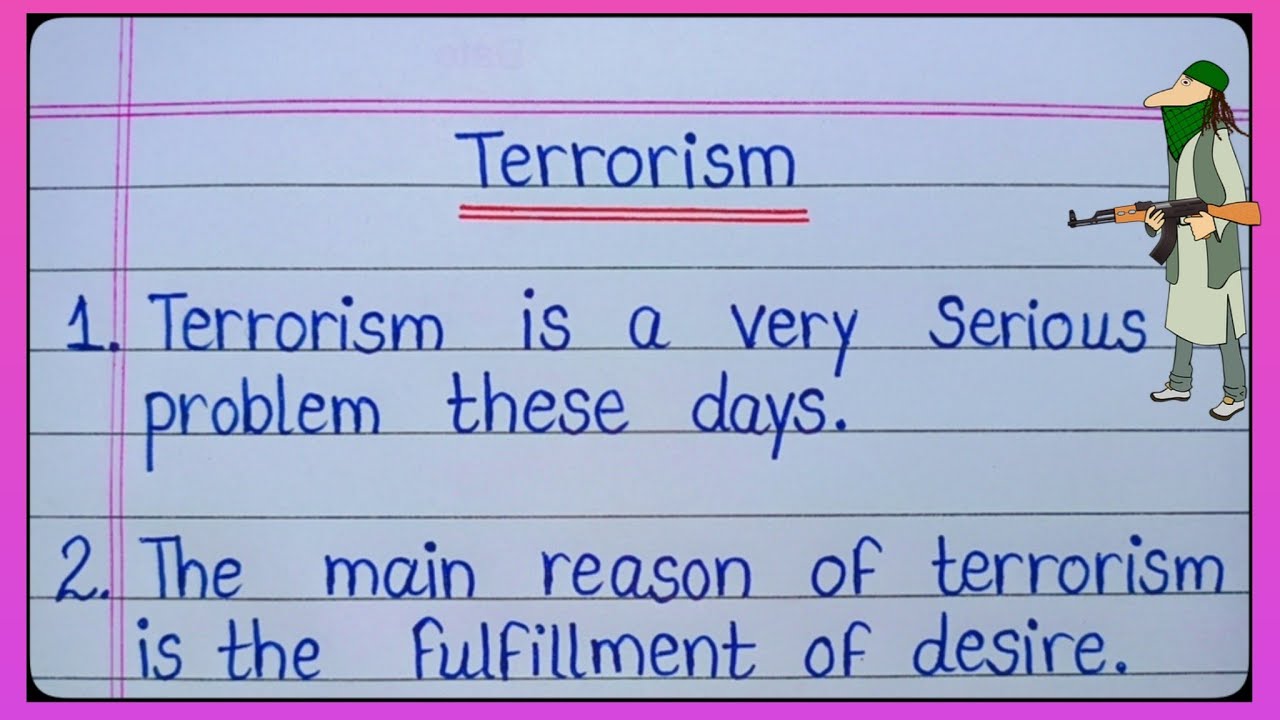 Terrorism
1. Terrorism is a very Serious
problem these days.
2. The main reason of terrorism
is the fulfillment of desire.